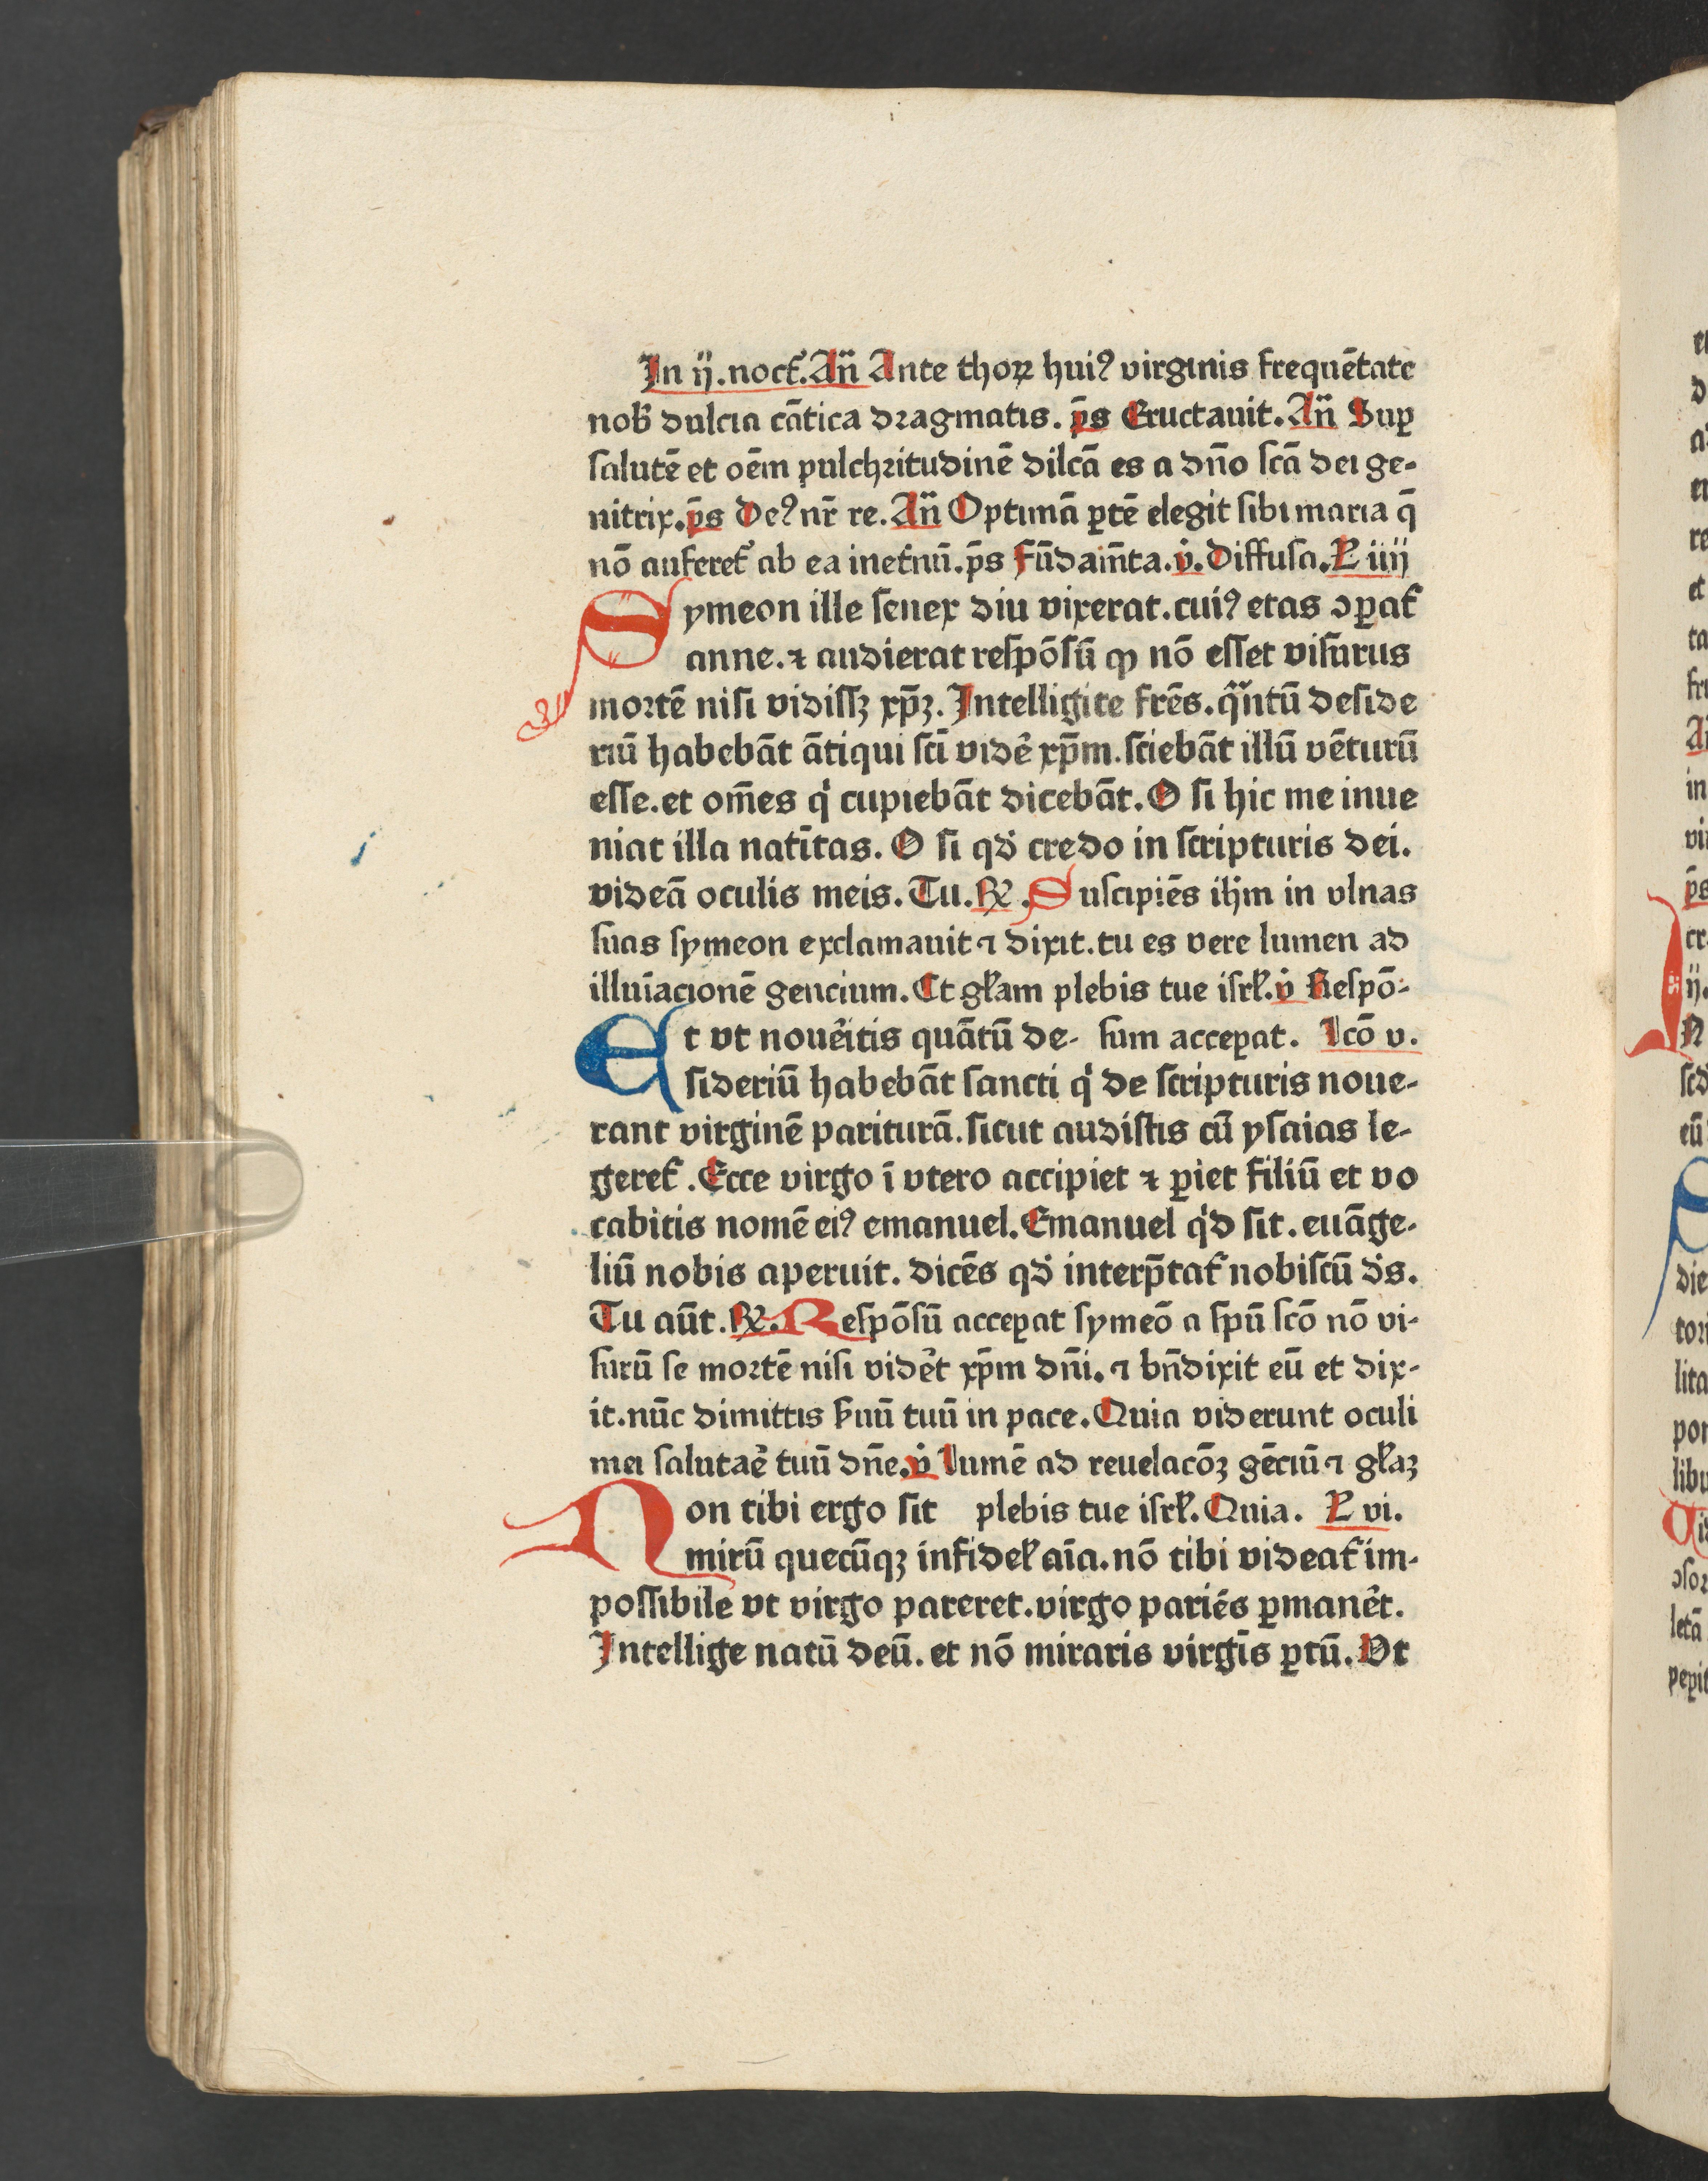 In ij.noct̄.An̄ Ante thoꝝ huiꝰ virginis frequētate
nob̄ dulcia cātica dragmatis. p̄s Eructauit. An̄ Suꝑ
ſalutē et oēm pulchritudinē dilcā es a dn̄o ſcā dei ge-
nitrix. p̄s Deꝰ nr̄ re. An̄ Optimā ꝑtē elegit ſibi maria q̄
nō auferet̄ ab ea inet̄nū. p̄s Fūdam̄ta. v̇. Diffuſa. L̄ iiij
Symeon ille ſenex diu vixerat. cuiꝰ etas ↄꝑat̄
anne. ⁊ audierat reſpōſū ꝙ nō eſſet viſurus
mortē niſi vidiſſꝫ xp̄ꝫ. Intelligite frēs. qᷓntū deſide
riū habebāt ātiqui ſcī vidē xp̄m. ſciebāt illū vēturū
eſſe. et om̄es qͥ cupiebāt dicebāt. O ſi hic me inue
niat illa natītas. O ſi qd̄ credo in ſcripturis dei.
videā oculis meis. Tu. ℟. Suſcipiēs ih̄m in vlnas
ſuas ſymeon exclamauit ⁊ dixit. tu es vere lumen ad
illuīacionē gencium. Et gl̄am plebis tue iſrl̄. v̇ Reſpō-
Et vt nouēitis quātū de- ſum acceꝑat. Lcō v.
ſideriū habebāt ſancti qͥ de ſcripturis noue-
rant virginē pariturā. ſicut audiſtis cū yſaias le-
geret̄. Ecce virgo ī vtero accipiet ⁊ ꝑiet filiū et vo
cabitis nomē eiꝰ emanuel. Emanuel qͥd ſit. euāge-
liū nobis aperuit. dicēs qd̄ interp̄tat̄ nobiſcū d̄s.
Tu aūt. ℟. Reſpōſū acceꝑat ſymeō a ſpū ſcō nō vi-
ſurū ſe mortē niſi vidēt xp̄m dn̄i. ⁊ bn̄dixit eū et dix-
it. nūc dimittis ẜuū tuū in pace. Quia viderunt oculi
mei ſalutaē tuū dn̄e. v̇ Lumē ad reuelacōꝫ gēciū ⁊ gl̄aꝫ
Non tibi ergo ſit plebis tue iſrl̄. Quia. L̄ vi.
mirū quecūqꝫ infidel̄ aīa. nō tibi videat̄ im-
poſſibile vt virgo pareret. virgo pariēs ꝑmanēt.
Intellige natū deū. et nō miraris virgīs ꝑtū. Vt